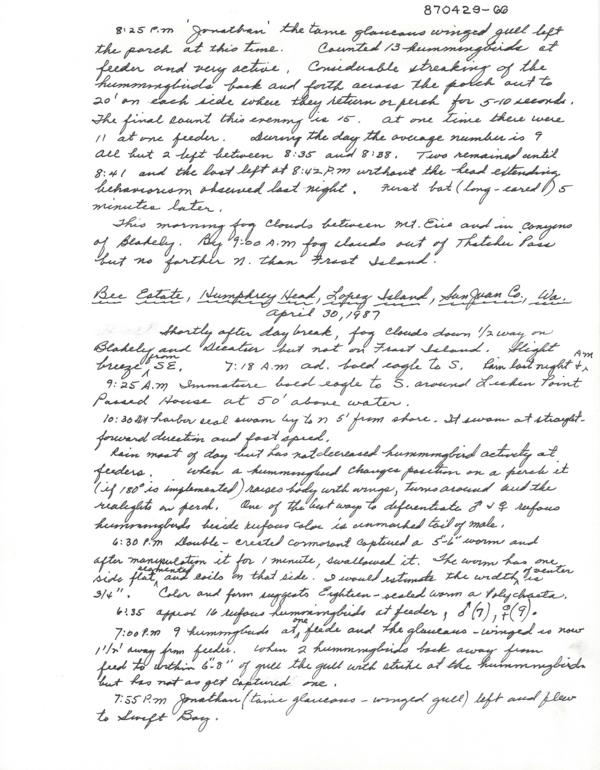 870429-66
8:25 P.M 'Jonathan' the tame glaucous winged gull left
the porch at this time. Counted 13-hummingbirds at
feeder and very active. Considerable streaking of the
hummingbirds back and forth across the porch out to
20' on each side where they return or perch for 5-10 seconds.
The final count this evening is 15. At one time there were
11 at one feeder. During the day the average number is 9
All but 2 left between 8:35 and 8:38. Two remained until
8:41 and the last left at 8:42 P.M without the head extending
behaviorism observed last night. First bat (long-eared) 5
minutes later.
This morning fog clouds between Mt. Erie and in canyons
of Blakely. By 9:00 A.M fog clouds out of Thatcher Pass
but no farther N. than Frost Island.
Bee Estate, Humphrey Head, Lopez Island, San Juan Co., Wa.
April 30, 1987
Shortly after daybreak, fog clouds down 1/2 way on
Blakely and Decatur but not on Frost Island. Slight
breeze from SE. 7:18 A.M ad. bald eagle to S. Rain last night & AM
9:25 A.M Immature bald eagle to S. around Lichen Point
Passed House at 50' above water.
10:30 AM harbor seal swam by to N 5' from shore. It swam at straight-
forward direction and fast speed.
Rain most of day but has not decreased hummingbird activity at
feeders. When a hummingbird changes position on a perch it
(if 180° is implemented) raises body with wings, turns around and the
realights on perch. One of the best ways to diferentiate ♂ & ♀ rufous
hummingbirds beside rufous color is unmarked tail of male.
6:30 P.M Double-crested cormorant captured a 5"-6" worm and
after manipulation it for 1 minute, swallowed it. The worm has one
side flat, segmented and coils on that side. I would estimate the width of venter is
3/4". Color and form suggests Eighteen-scaled worm a Polychaeta.
6:35 approx 16 rufous hummingbirds at feeder, ♂(7), ♀(9).
7:00 P.M 9 hummingbirds at one feede and the glaucous-winged is now
1 1/2' away from feeder. When 2 hummingbirds back away from
feed to within 6"-8" of gull the gull with strike at the hummingbirds
but has not as yet captured one.
7:55 P.M Jonathan (tame glaucous-winged gull) left and flew
to Swift Bay.